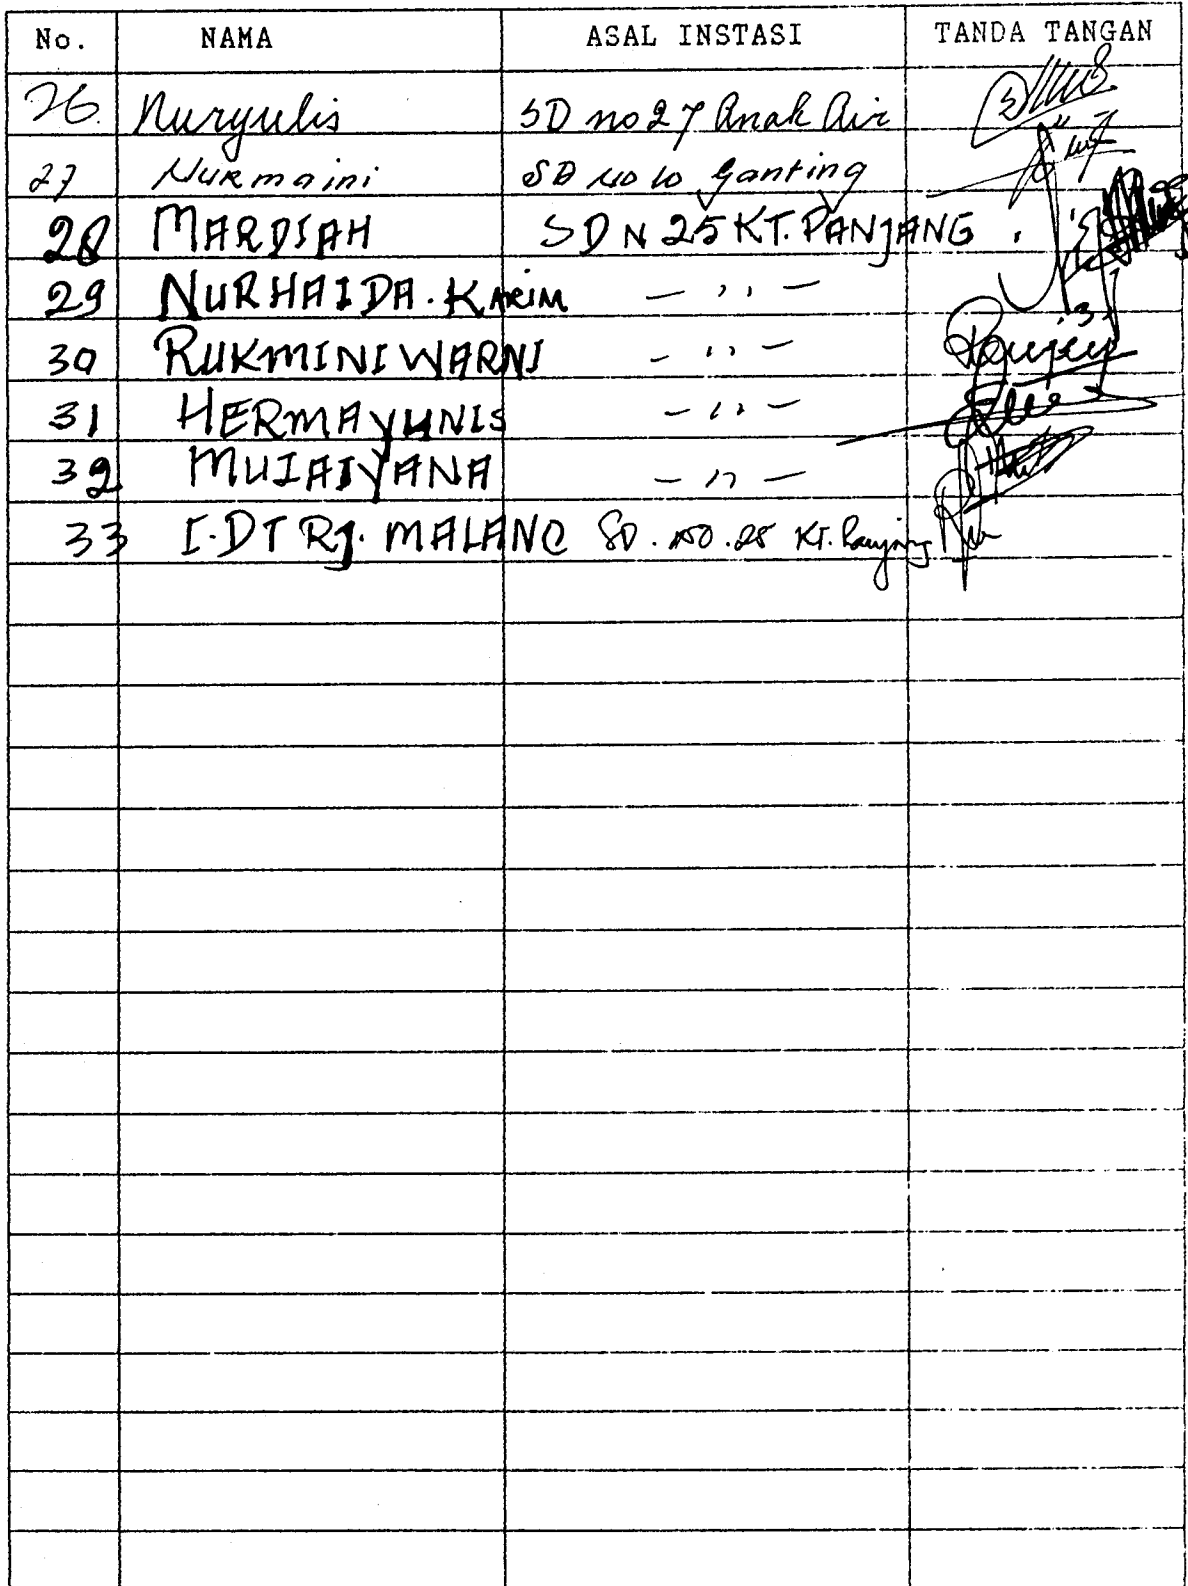 No. NAMA ASAL INSTASI TANDA TANGAN
26. Nuryulis SD no 27 Anak Air
27 Nurmaini SD no 10 Ganting
28 MARDIAH SD N 25 KT. PANJANG
29 NURHAIDA. KARIM — ,, —
30 RUKMINI WARNI — ,, —
31 HERMAYUNIS — ,, —
32 MUIAIYANA — ,, —
33 I. DT RJ. MALANO SD. NO. 25 KT. Panjang